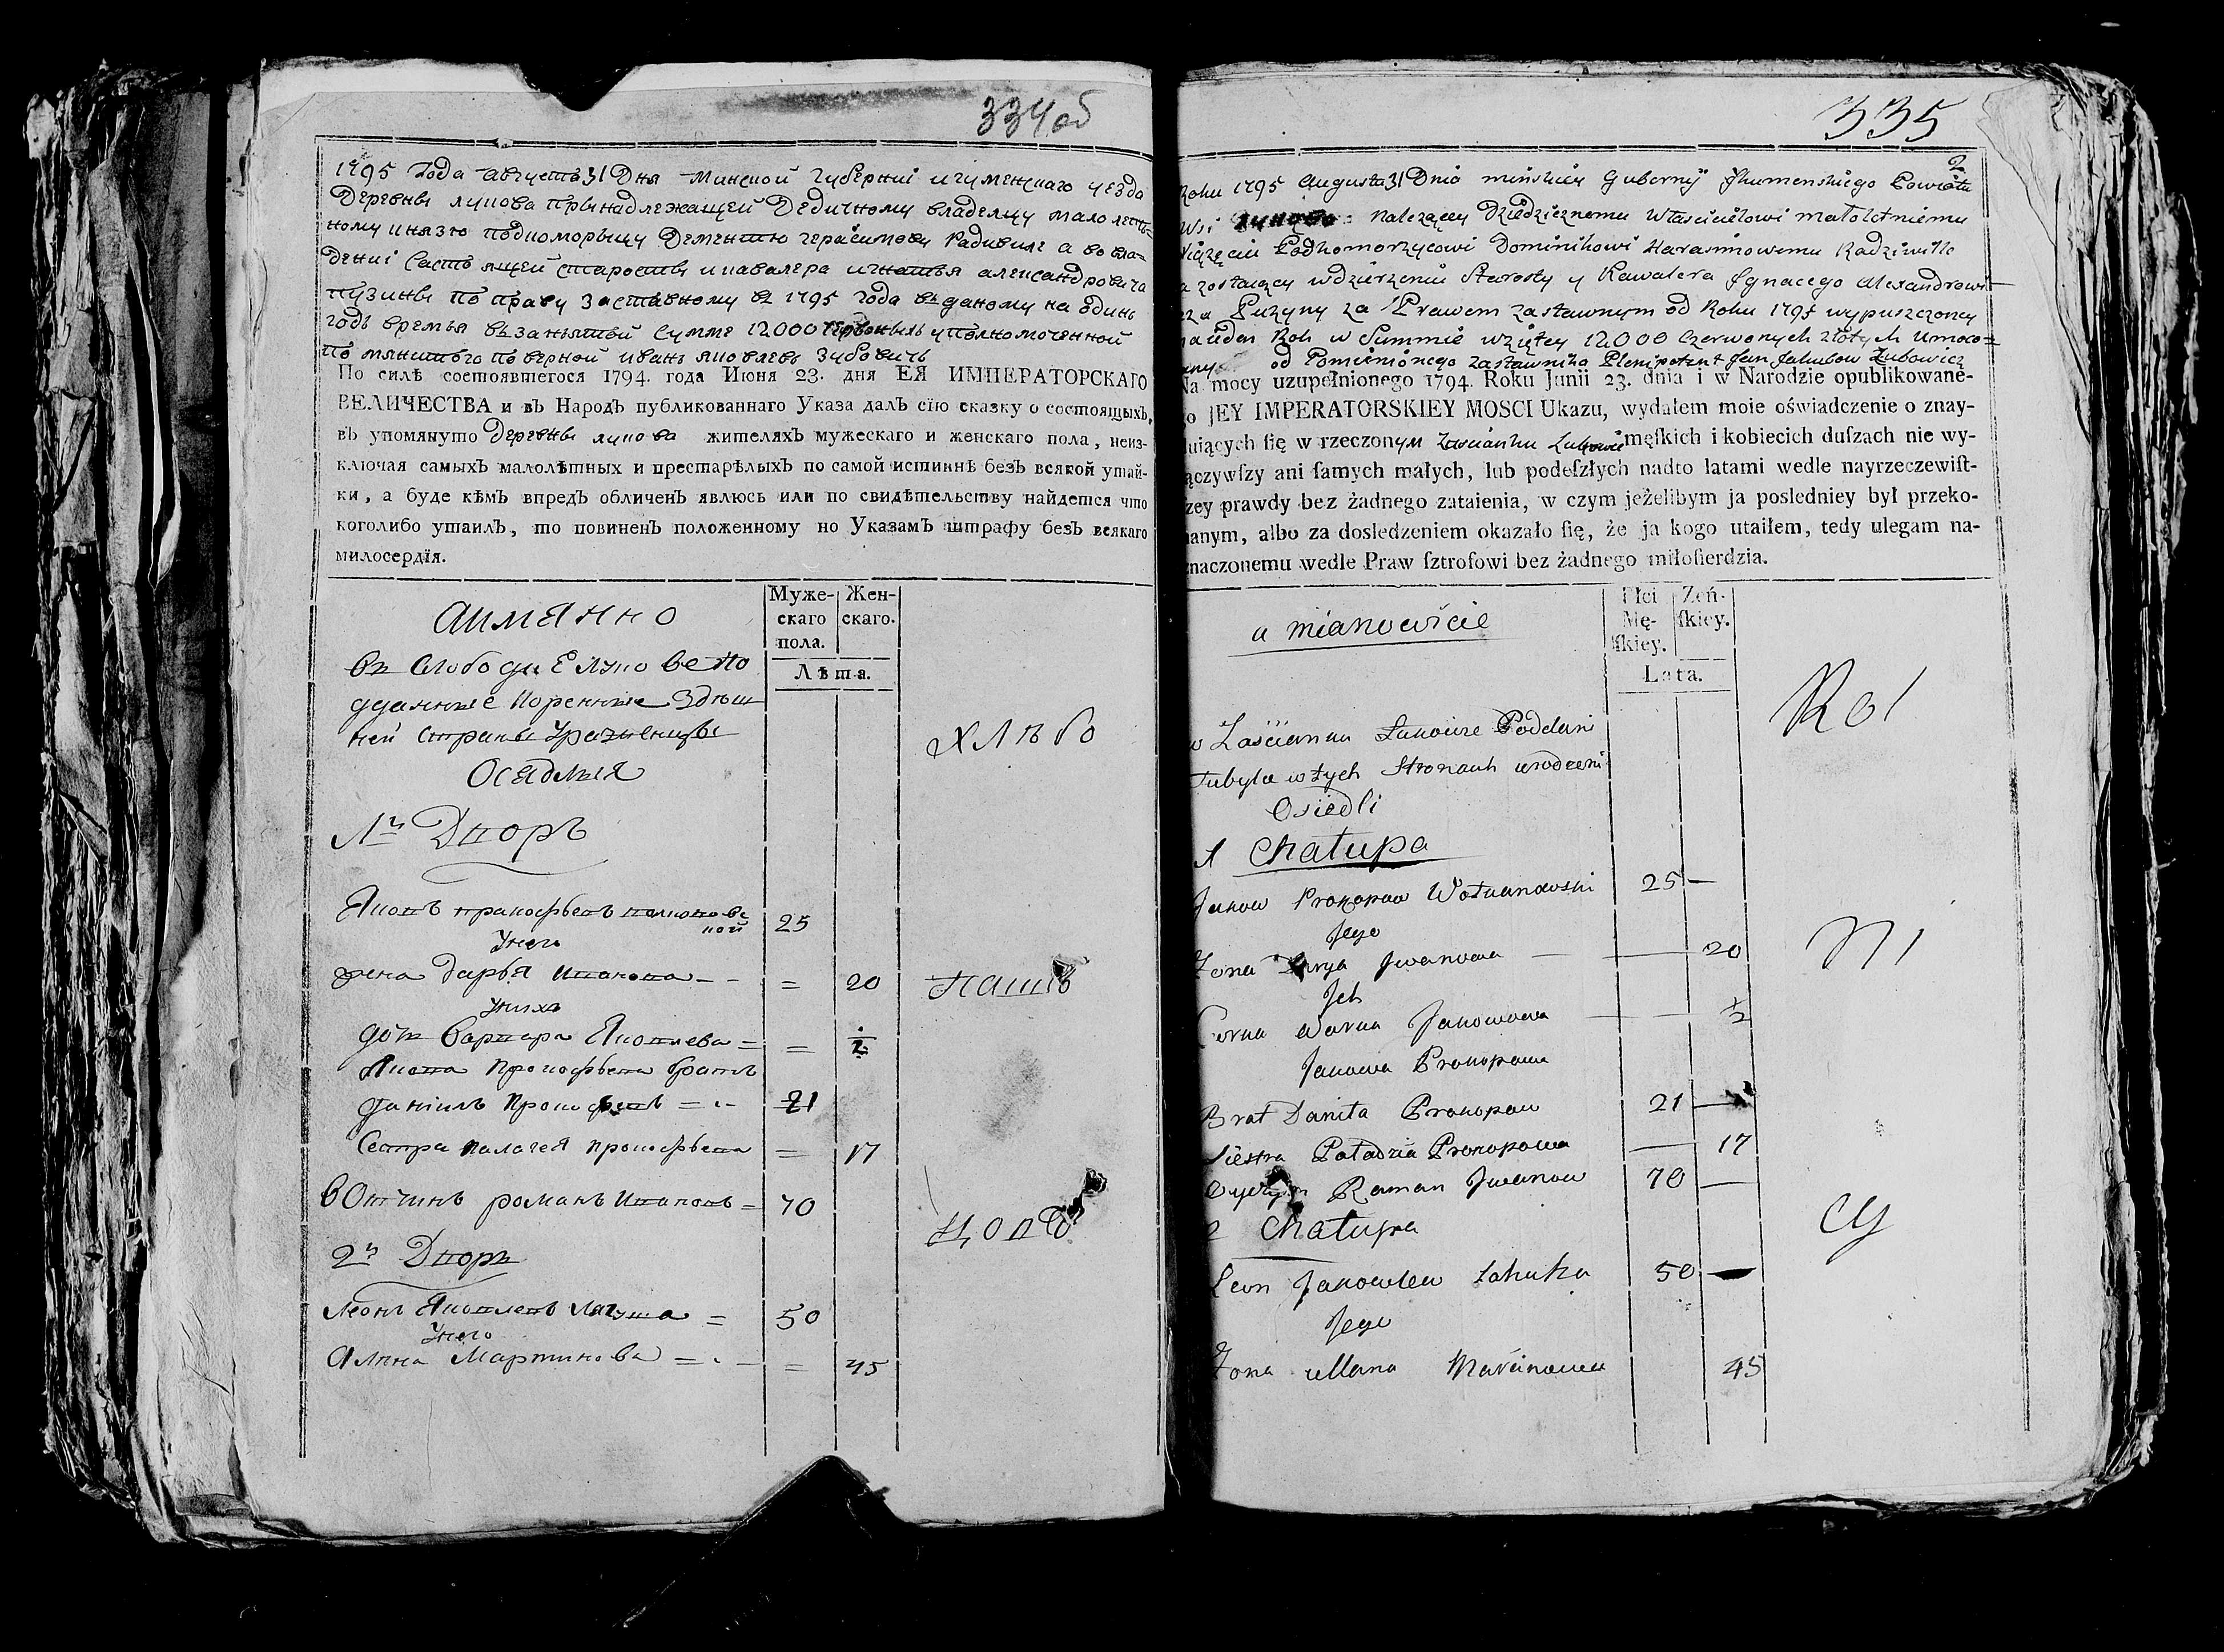 334об
1795 года августа 31 Дня Минской губерниі игуменскаго уезда
Деревны лукова прынадлежащей Дедичному владелцу мало летъ-
ному князю подкоморыцу герасимову Радивиле а во вла-
Дениі старосты икавалера игнатья александровича
пузины по праву заставному въ 1795 года въ даному на одинъ
годъ времья въ занятой Сумме 12000 уполномоченной
по верной иванъ яковлевъ Зубовичъ
По силѣ состоявшегося 1794. года Июня 23. дня ЕЯ ИМПЕРАТОРСКАГО
ВЕЛИЧЕСТВА и въ Народъ публикованнаго Указа далъ сїю сказку о состоящыхъ,
въ упомянуто Деревны лукова жителяхъ мужескаго и женскаго пола, неиз-
ключая самыхъ малолѣтныхъ и престарѣлыхъ по самой истиннѣ безъ всякой утай-
ки, а буде кѣмъ впредъ обличенъ явлюсь или по свидѣтельству найдется что
коголибо утаилъ, то повиненъ положенному по Указамъ штрафу безъ всякаго
милосердїя.
аимянно
Муже-
скаго
пола.
Жен-
скаго.
Лѣта.
въ Слободи Елукове по
дданные коренные Здѣш
ней страны
Осядлыя
хлѣбо
1й Дворъ
Яковъ пракофьевъ 25
Унего
жена Дарья Иванова - - = 20
пашъ
Унихъ
дочъ Варвара Яковлева = = 1/2
Якова Прокофьева братъ
Данило Прокофьевъ = - 21
Сестра Палагея прокофьева — 17
вотчинъ романъ Ивановъ = 70
цовъ
2й Дворъ
Леонъ Яковлевъ = 50
Унего
Мартинова = - - = 45
335
2
Roku 1795 Augusta 31 Dnia minskiey Gubernij Jhumenskiego Powiatu
Wsi należącey Dziedzicznemu Właścicielowi małoletniemu
Xiążęciu Podkomorzycowi Dominikowi Harasimowemu Radziwille
a zostaiącey wdzierżeniu Starosty y Kawalera Jgnacego Alexandrowi-
cza Puzyny za Prawem zastawnym od Roku 1795 wypuszczoney
na ieden Rok w Summie wziętey 12000 Czerwonych złotych Umoco-
wany od Pomienionego zastawnika Plenipotent Jan Jakubow Zubowicz
Na mocy uzupełnionego 1794. Roku Junii 23. dnia i w Narodzie opublikowane-
go JEY IMPERATORSKIEY MOSCI Ukazu, wydałem moie oświadczenie o znay-
duiących ſię w rzeczonym Zascianku męſkich i kobiecich duſzach nie wy-
łączywſzy ani ſamych małych, lub podeſzłych nadto latami wedle nayrzeczewiſt-
ſzey prawdy bez żadnego zataienia, w czym jeżelibym ja posledniey był przeko-
nanym, albo za dosledzeniem okazało ſię, że ja kogo utaiłem, tedy ulegam na-
znaczonemu wedle Praw ſztrofowi bez żadnego miłoſierdzia.
a mianowicie
Płci
Mę-
ſkiey.
Żeń-
ſkiey.
Lata.
Rol
w Zaścianku Łukowce Poddani
tubylce wtych Stronach urodzeni
Osiedli
1 Chałupa
Jakow Prokopow 25 —
Jego
ni
Żona Darya Jwanowa — — 20
Jch
Corka Warka Jakowowa — — 1/2
Jakowa Prokopowa
Brat Daniła Prokopow 21 —
Siestra Poładzia Prokopowa — 17
Oyczym Raman Jwanow 70 —
cy
2 Chałupa
Leon Jakowlew Łahuta 50 —
Jego
Żona Marcinowa 45